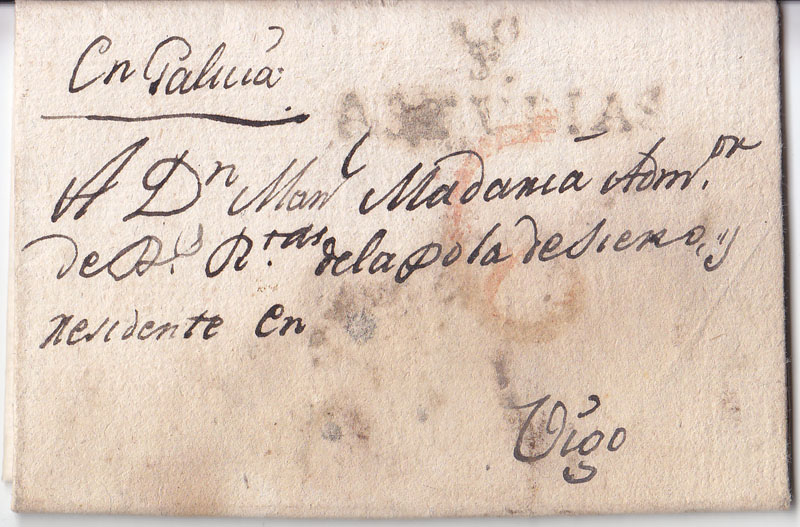 En Galicia
A Dn Manl Madania Admor
de Rs Rtas de la Pola de Siero, y
residente en
Vigo